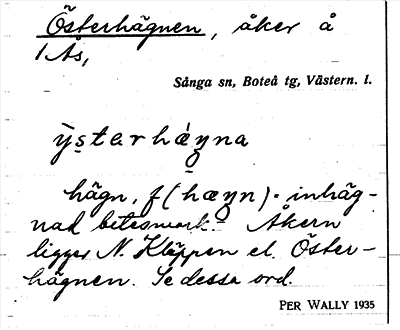 ÖstERhägnen, åker å
1 As,
Sånga sn, Boteå tg, Västern. l.
ỳsterhæ̀ŋna
hägn, f (hæŋn) = inhäg-
nad betesmark. Åkern
ligger N. Kläppen el. Öster-
hägnen. Se dessa ord.
PER WALLY 1935